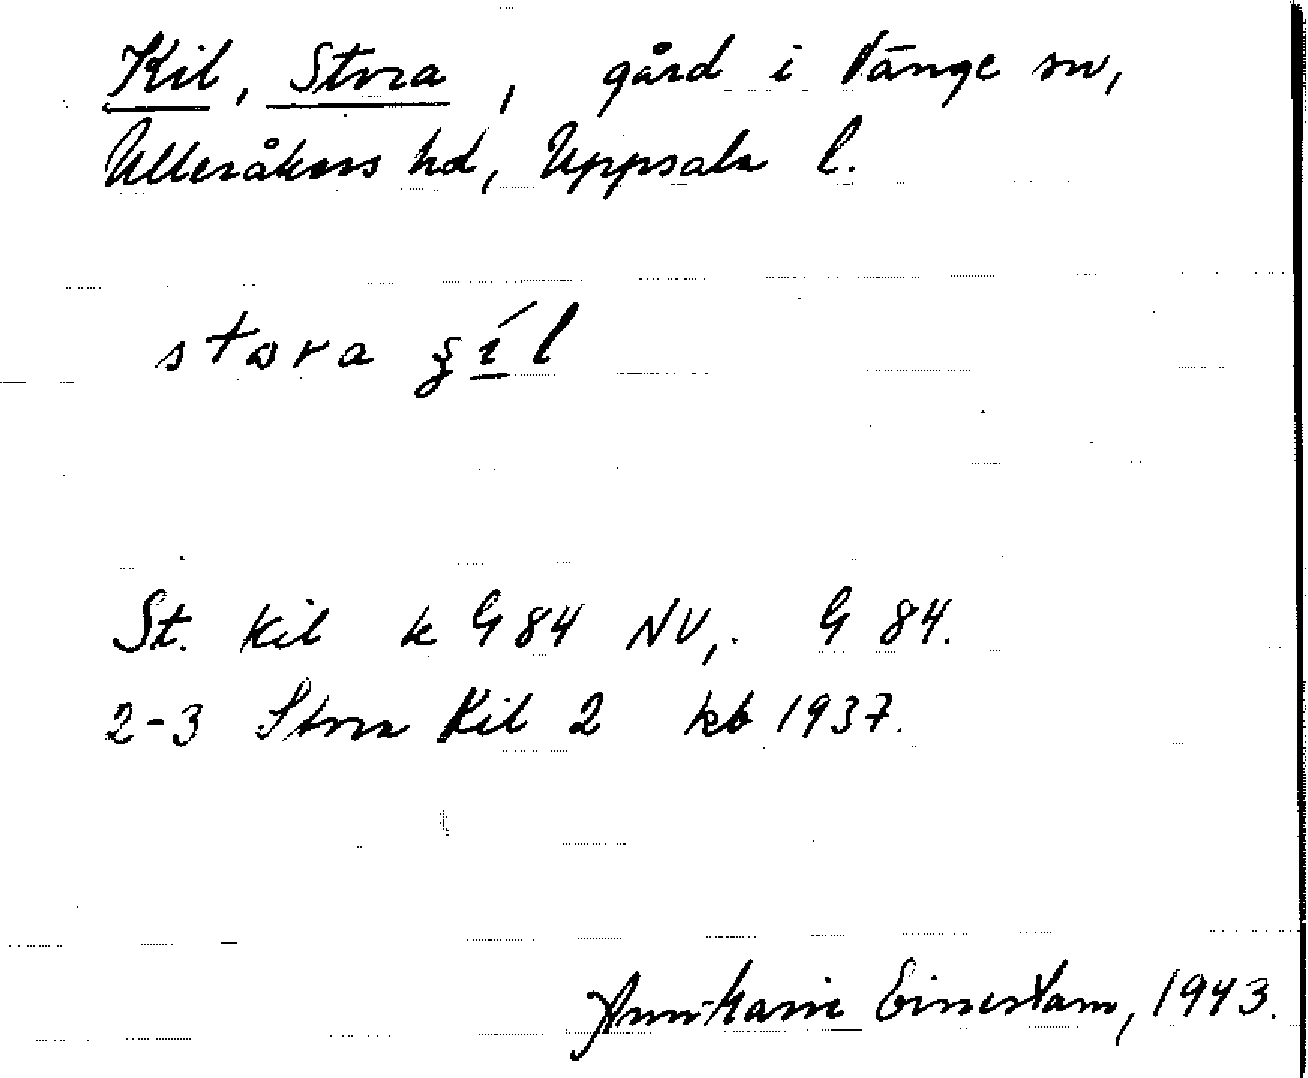 Kil, Stora, gård i Vänge sn,
Ulleråkers hd, Uppsala l.
stora
St. Kil k G 84 NV,. G 84.
2-3 Stora Kil 2 kb 1937.
Ann-Marie Einestam, 1943.